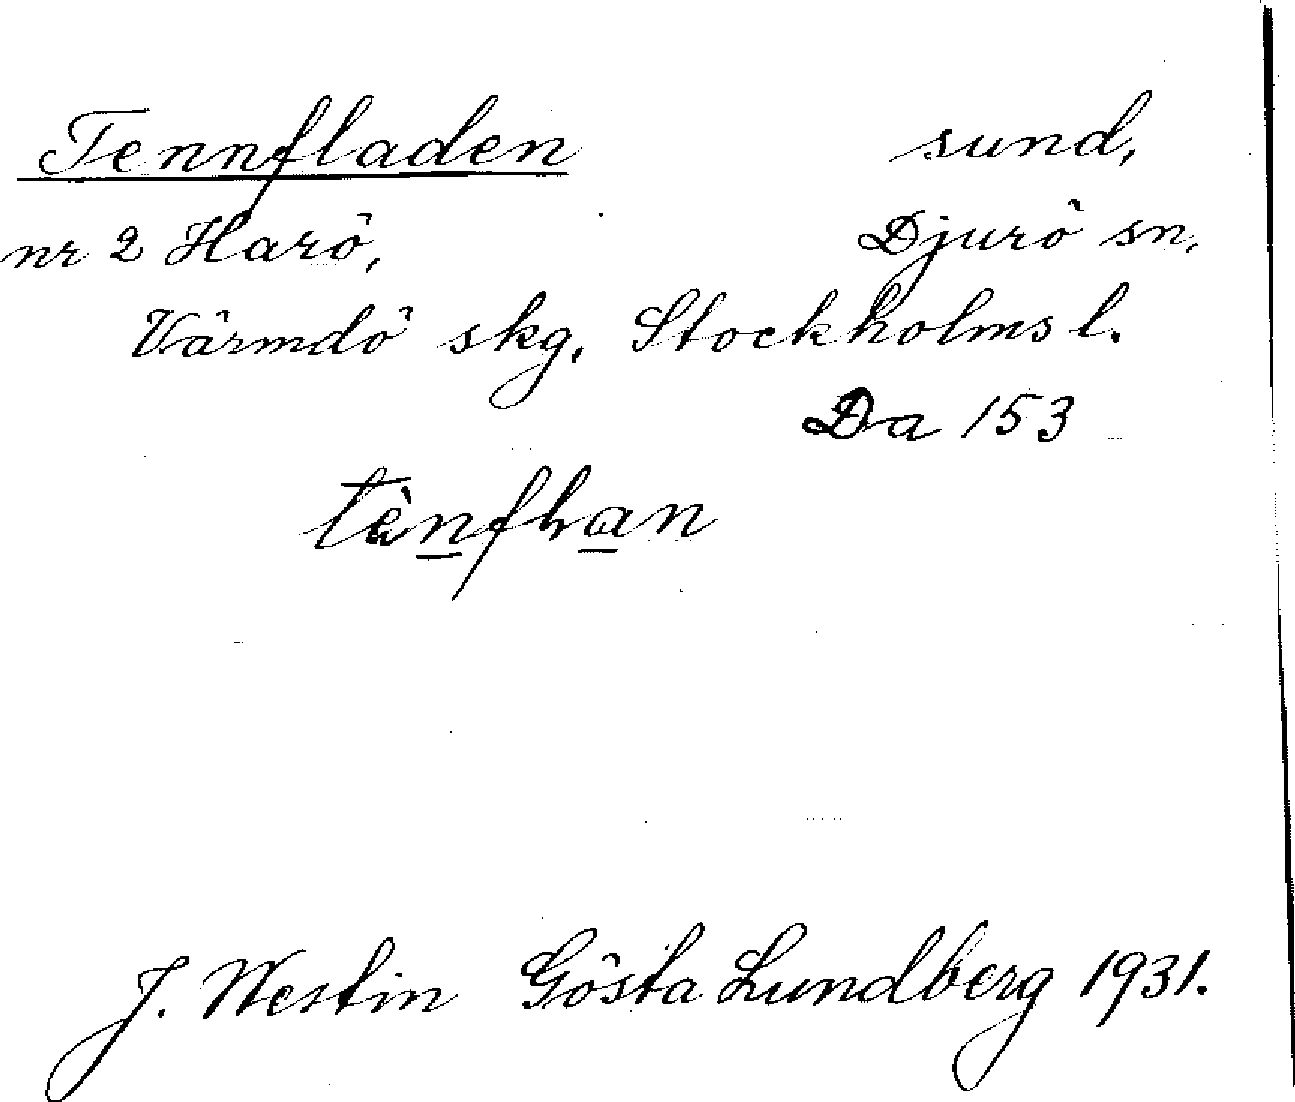 Tennfladen sund,
nr 2 Harö, Djurö sn,
Värmdö skg, Stockholms l.
Da 153
J. Westin Gösta Lundberg 1931.